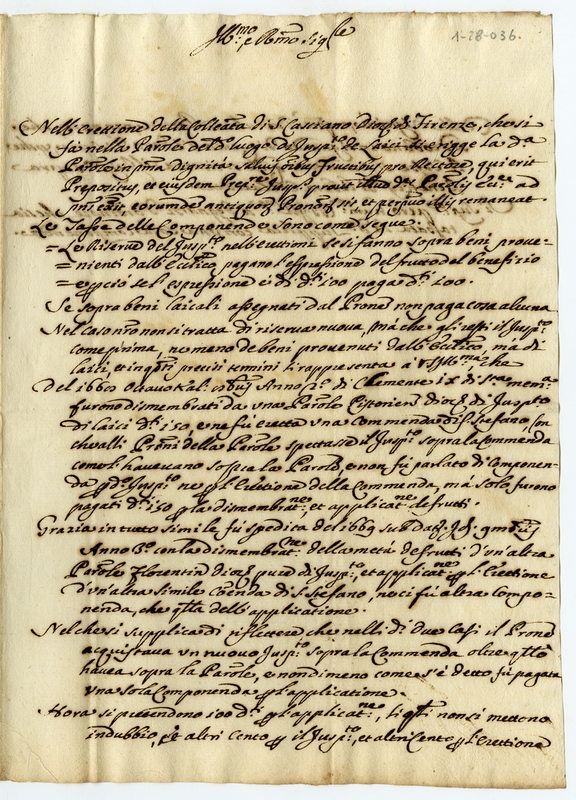 Ill:mo e R.mo Sig.re
1-28-036.
Nell'erettione della Colleg.ta di S. Casciano Dioc. di Firenze, che si
fà nella Paro.le del d.o luogo di Jusp.to de laici si erigge la d.a
Paro.le in p.ma dignità salvis oibus fructibus pro Rectore, qui erit
Prepositus, et eiusdem Prepo.re Jusp.to prout illud d.a Parolis
remaneat
Le Tasse delle Componende sono come segue.
= Le Riserve del Jusp.to nell'erettioni se si fanno sopra beni prove-
= nienti dall'Ecclico, pagano l'espressione del frutto del beneficio
= eccio se l'espressione è di d.ti 100 paga d.ti 100.
Se sopra beni laicali assegnati dal Prone non paga cosa alcuna
Nel caso nro non si tratta di riserva nuova, mà che gli resti il Jusp.to
come prima, ne meno de beni provenuti dall'Ecclico, mà di
laici, et in q.sti precisi termini si rappresenta à V.S. Ill.ma, che
Del 1667 Octavo Kal. Anno p.o di Clemente IX di s.ta mem.a
furono dismembrati da una Paro.le Pistorien dioc. di Jusp.to
di laici d.ti 150, e ne fu eretta una Commenda di S. Stefano, con
che alli Proni della Paro.le spettasse il Jusp.to sopra la Commenda
come l'havevano sopra la Paro.le, e non fù parlato di Componen-
da p. d.o Jusp.to ne p. l'Erettione della Commenda, mà solo furono
pagati d.ti 150 p. la dismembrat.ne, et applicat.ne de frutti.
Grazia in tutto simile fù spedita del 1669
Anno 3.o con la dismembrat.ne della metà de frutti d'un'altra
Paro.le Florentin dioc. pure di Jusp.to, et applicat.ne p. l'Erettione
d'un'altra simile Co'enda di S. Stefano, ne ci fù altra compo-
nenda, che q.lla dell'applicatione.
Nel che si supplica di riflettere che nelli d.i due casi il Prone
acquistava un nuovo Jusp.to sopra la Commenda oltre q.llo
havea sopra la Paro.le, e nondimeno come s'è detto fù pagata
una sola Componenda p. l'applicatione.
Hora si pretendono 100 d.ti p. l'applicat.ne, li q.li non si mettono
in dubbio, et altri Cento p. il Jusp.to, et altri Cento p. l'Erettione